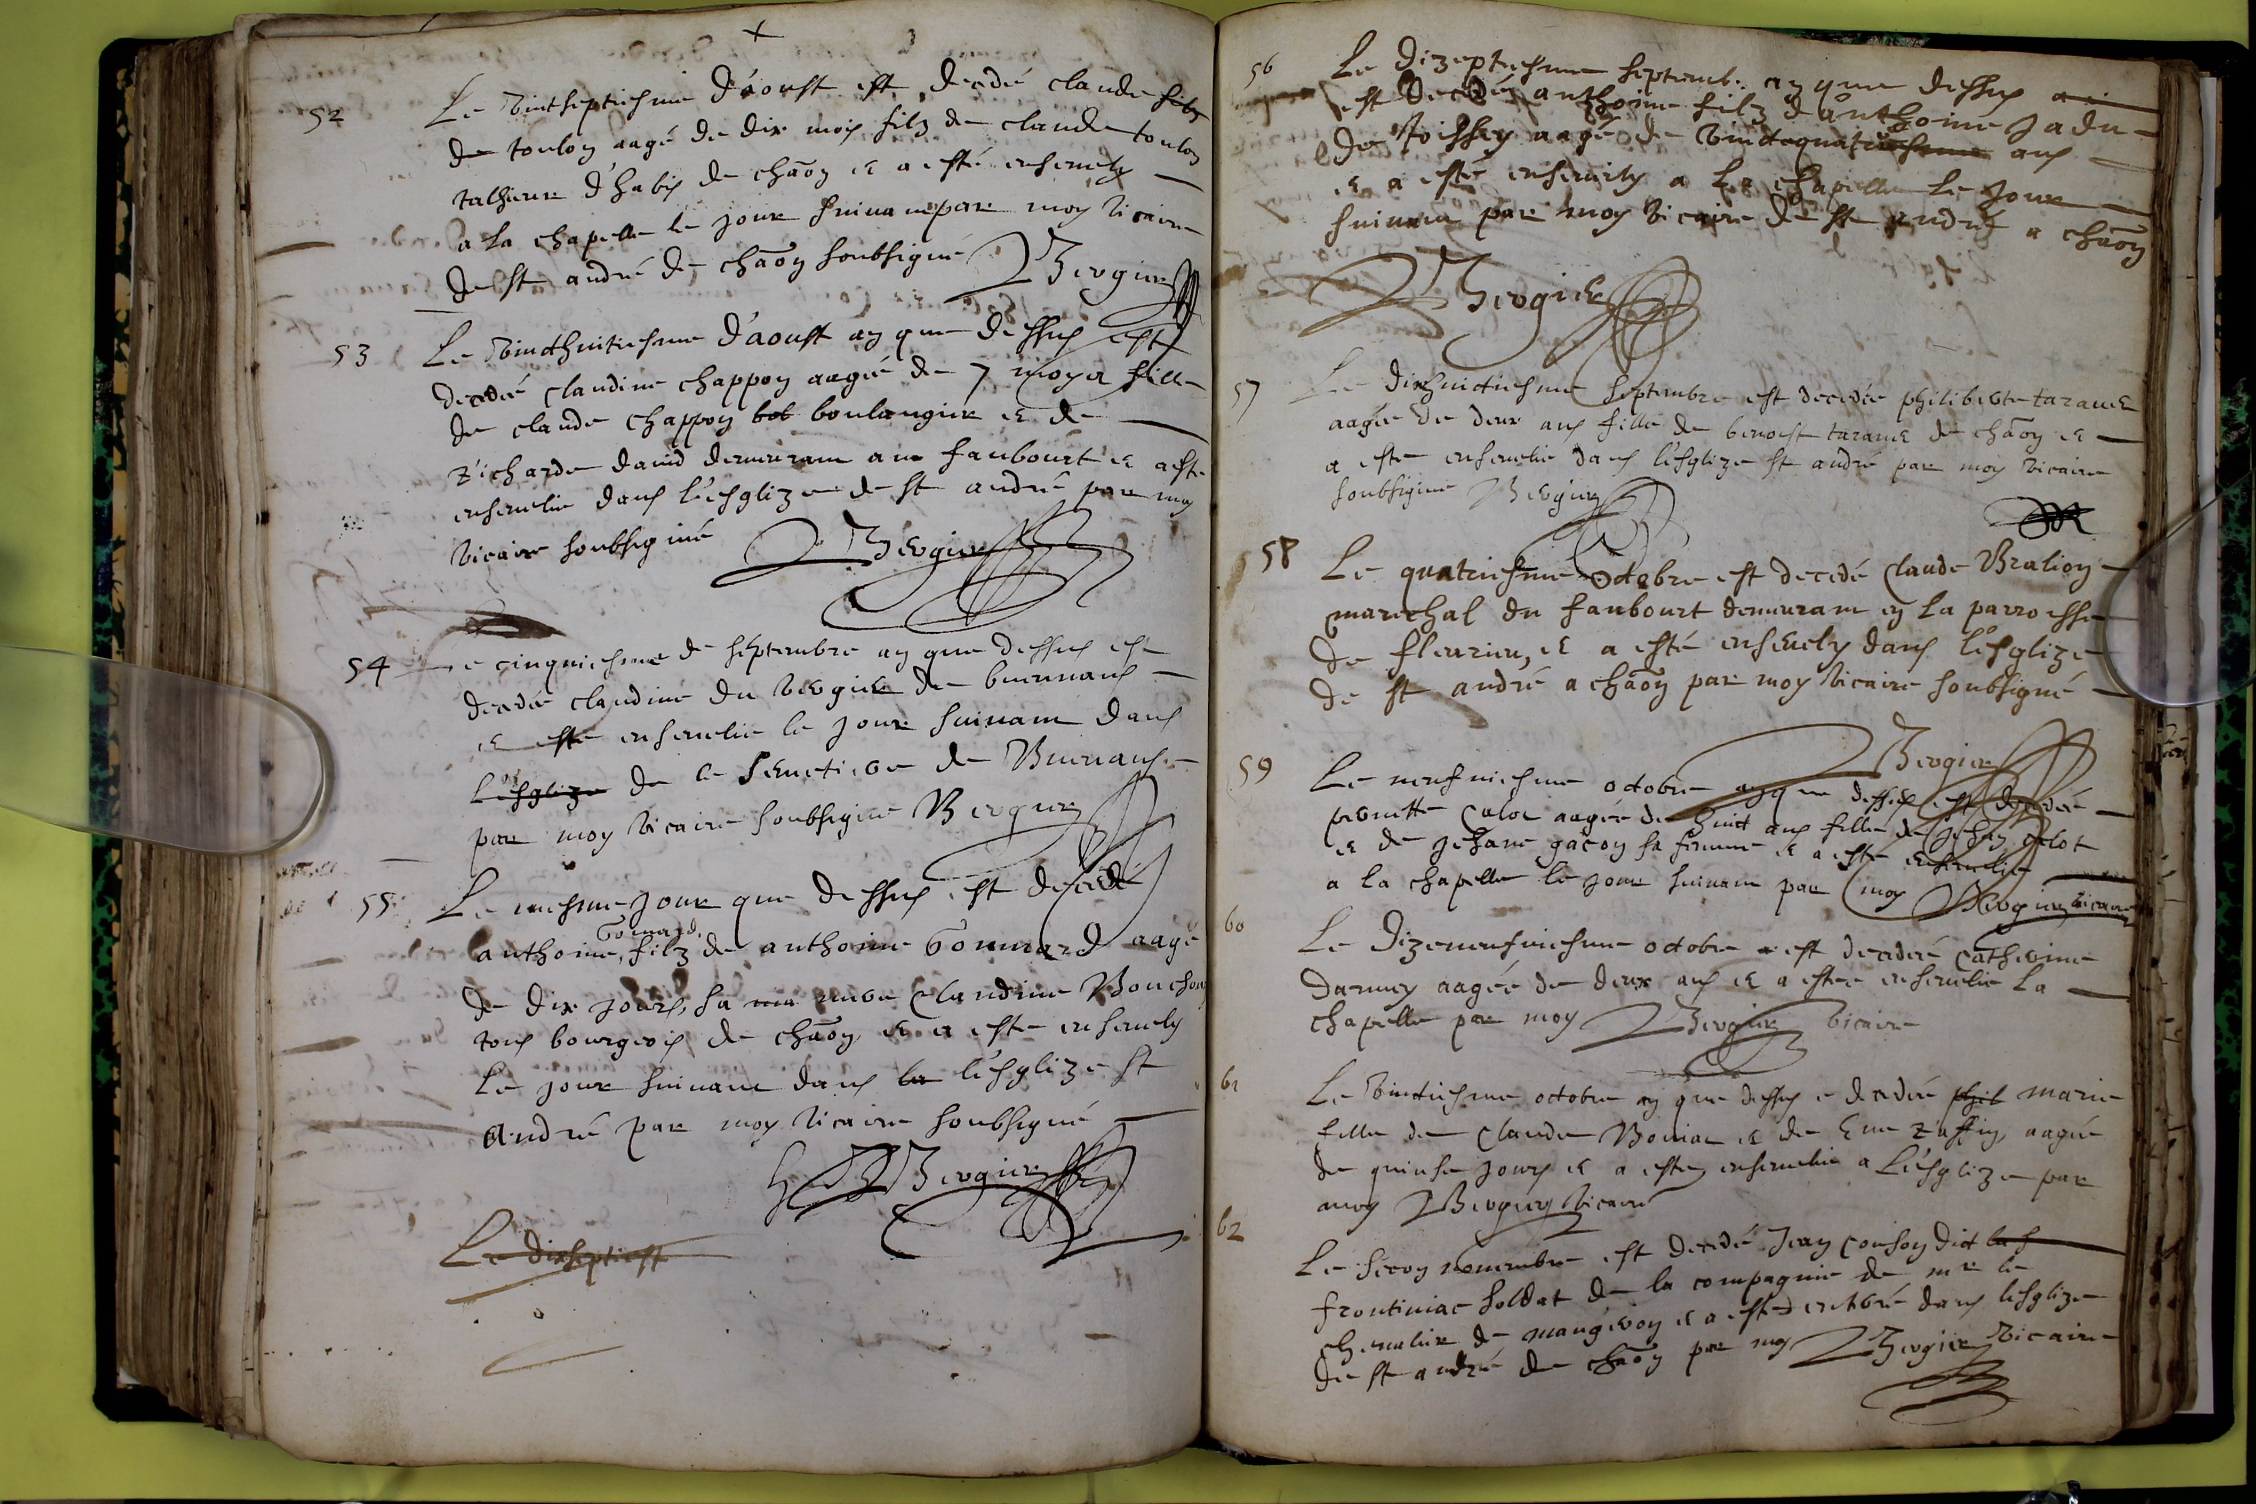 52 Le vintseptiesme d'aoust est decedé claude filz
de toulon aagé de dix mois filz de claude toulon
talhieur d'habis de chaōn et a esté ensevely
a la chapelle le jour suivant par moy vicaire
de st andré de chaōn soubsigné Vergier
53 Le vinthuitiesme d'aoust an que dessus est
decedée claudine chappon aagée de 7 moys fille
de claude chappon bob boulangier et de
richarde david demeurant au faubourt et a esté
ensevelie dans l'esglize de st andré par moy
vicaire soubsigné Vergier
54 Le cinquiesme de septembre an que dessus est
decedée claudine du vergier de buenans
et esté ensevelie le jour suivant dans
l'esglize de le semetiere de Buenans
par moy vicaire soubsigné Vergier
55 Le mesme jour que dessus est decedé
Gonnard
anthoine, filz de anthoine Gonnard aagé
de dix jours, sa ma mere Claudine Bouchon
tous bourgeois de chaōn et a esté ensevely
Le jour suivant dans la l'esglize st
André par moy vicaire soubsigné
Vergier
Le dixseptiesm
56 Le dizeptiesme septemb. an que dessus
est decedé anthoine filz d'anthoine Jadu
de toissey aagé de vintequatriesme ans
et a esté ensevely a la chapelle le jour
suivant par moy vicaire de st André a chaōn
Vergier
57 Le dixhuictiesme septembre est decedée philiberte taravel
aagée de deux ans fille de benoist taravel de chaōn et
a esté ensevelie dans l'esglize st andré par moy vicaire
soubsigné Vergier
58 Le quatriesme octobre est decedé Claude Bralion
marechal du faubourt demeurant en la parroisse
de fleurieu, et a esté ensevely dans l'esglize
de st andré a chaōn par moy vicaire soubsigné
Vergier
59 Le neufviesme octobre an que dessus est decedée
pernette Calot aagée de huict ans fille de Jehan Calot
et de Jehane gacon sa femme et a esté ensevelie
a la chapelle le jour suivant par moy Vergier vicaire
60 Le Dizeneufviesme octobre est decedée Catherine
Danney aagée de deux ans et a esté ensevelie La
chapelle par moy Vergier vicaire
61 Le vintiesme octobre an que dessus e decedée phil marie
fille de Claude Boniat et de Eve aagée
de quinse jours et a esté ensevelie a L'esglize par
moy Vergier vicaire
62 Le secon novembre est decedé Jean Couson dict las
frontiniac soldat de la compagnie de mr le
chevalier de maugiron et a esté enterré dans l'esglize
de st andré de chaōn par moy Vergier vicaire